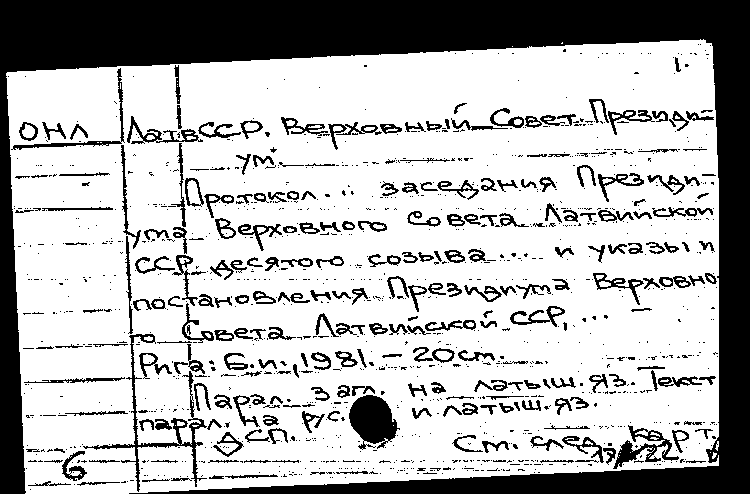 1.
ОНЛ ЛатвССР. Верховный Совет. Президи-
ум.
Протокол... заседания Президи-
ума Верховного Совета Латвийской
ССР десятого созыва... и указы и
постановления Президиума Верховно-
го Совета Латвийской ССР, ... —
Рига: Б.и., 1981. – 20см.
Парал. загл. на латыш. яз. Текст
парал. на рус. и латыш. яз.
ДСП. См. след. карт.
6